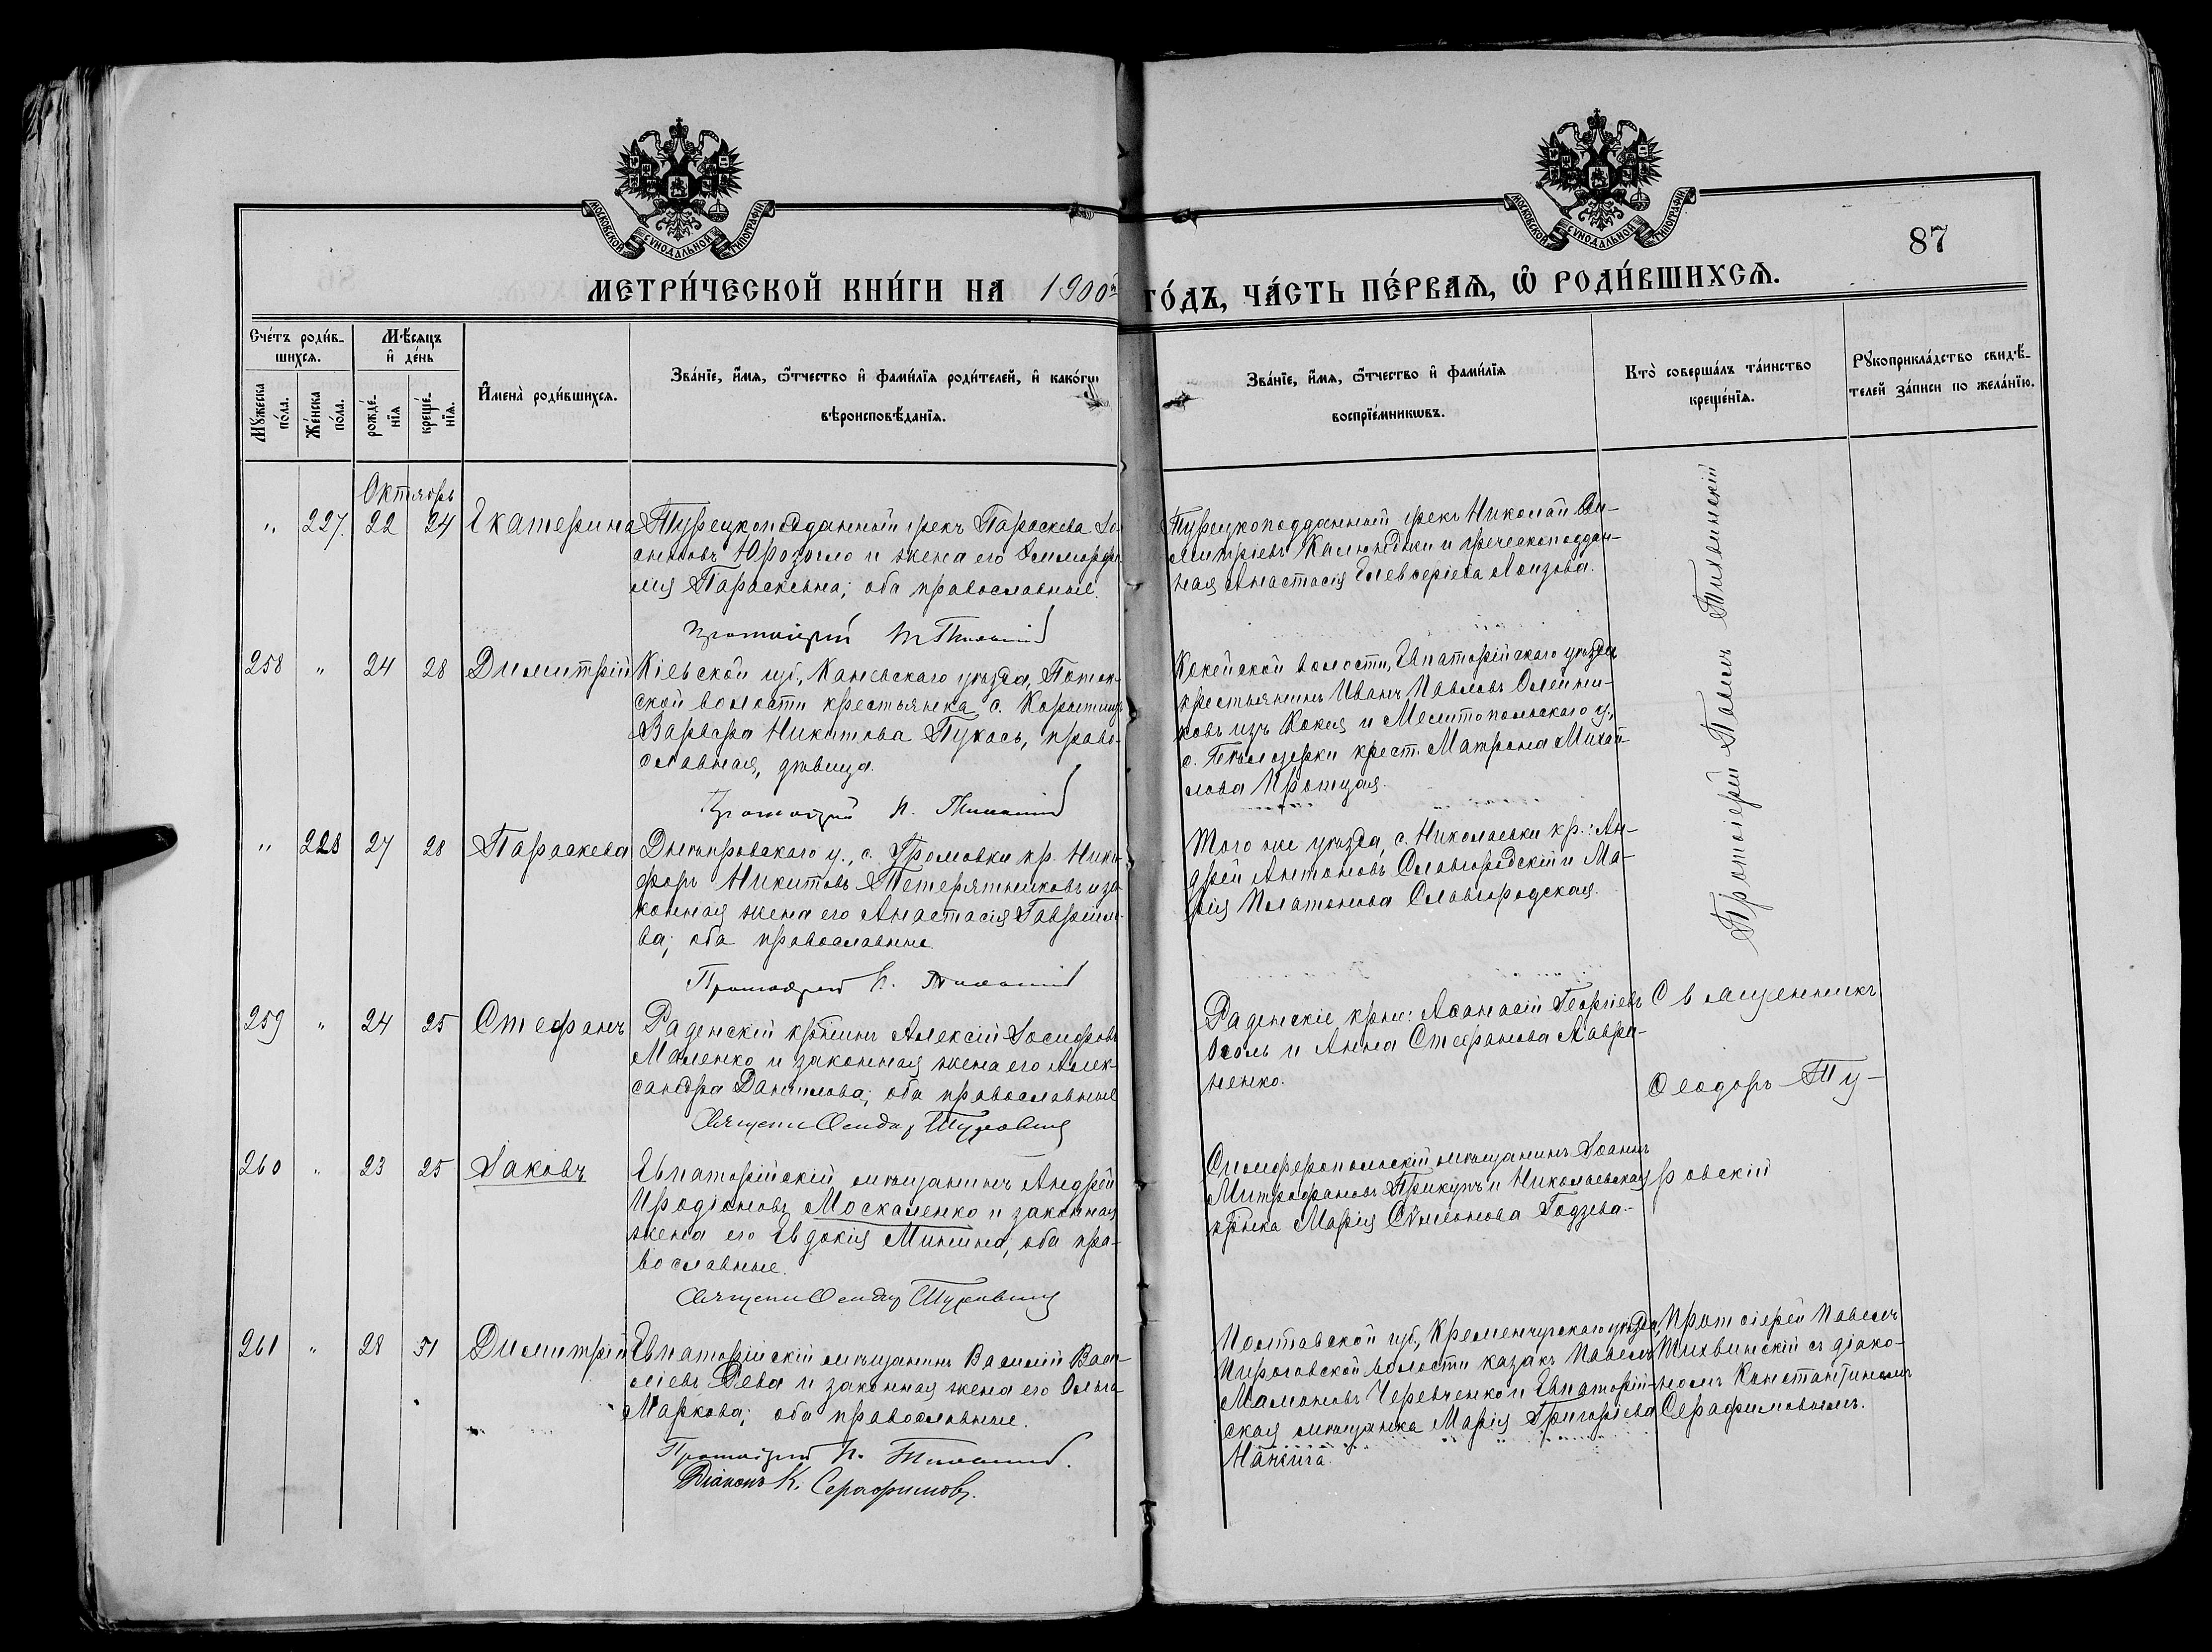 МОСКОВСКОЙ СУНОДАЛЬНОЙ ТИПОГРАФІИ
МОСКОВСКОЙ СУНОДАЛЬНОЙ ТИПОГРАФІИ
87
МЕТРИ́ЧЕСКОЙ КНИ́ГИ НА 1900й ГО́ДЪ, ЧА́СТЬ ПЕ́РВАѦ, Ѡ҆ РОДИ́ВШИХСѦ.
Сче́тъ роди́в-
шихсѧ.
Мꙋ́жеска
по́ла.
Же́нска
по́ла.
Мѣ́сѧцъ
и҆ де́нь
рожде́-
нїѧ
креще́-
нїѧ.
И҆мена̀ роди́вшихсѧ.
Зва́нїе, и҆́мѧ, ѻ҆́тчество и҆ фами́лїѧ роди́телей, и҆ како́гѡ
вѣроисповѣ́данїѧ.
Зва́нїе, и҆́мѧ, ѻ҆́тчество и҆ фами́лїѧ
воспрїе́мникѡвъ.
Кто̀ соверша́лъ та́инство
креще́нїѧ.
Рꙋкоприкла́дство свидѣ́-
телей за́писи по жела́нїю.
Октябрь
" 227. 22 24 Екатерина
Турецкоподданный грекъ Параскева Іо-
анновъ и жена его
Параскевна; оба православные.
Протоіерей П. Тихвинскій
Турецкоподданный грекъ Николай Ди-
митріевъ и греческоподдан-
ная Анастасія Елевѳеріева
Протоіерей Павелъ Тихвинскій
258 " 24 28 Димитрій
Кіевской губ., Каневскаго уѣзда, Поток-
ской волости крестьянка с.
Варвара Никитова Пукась, право-
славная, дѣвица.
Протоіерей П. Тихвинскій
волости, Евпаторійскаго уѣзда
крестьянинъ Иванъ Павловъ Олейни-
ковъ изъ и Мелитопольскаго у.,
с. Бѣлозерки крест. Матрона Михай-
лова
" 228 27 28 Параскева
Днѣпровскаго у., с. Громовки кр. Ники-
форъ Никитовъ Тетерятниковъ и за-
конная жена его Анастасія Гавріило-
ва; оба православные.
Протоіерей П. Тихвинскій
Того же уѣзда, с. Николаевки кр.: Ан-
дрей Антоновъ Славгородскій и Ма-
рія Платонова Славгородская.
259 " 24 25 Стефанъ
Раденскій крнинъ Алексій Іосифовъ
Маленко и законная жена его Алек-
сандра Данилова; оба православные
Священ. Ѳеодор Туровскій
Раденскіе крне: Аѳанасій Георгіевъ
и Анна Стефанова Лаври-
ненко.
Священникъ
Ѳеодоръ Ту-
ровскій
260 " 23 25 Іаковъ
Евпаторійскій мѣщанинъ Андрей
Иродіоновъ Москаленко и законная
жена его Евдокія Минина; оба пра-
вославные.
Священ. Ѳеодор Туровскій
Симферопольскій мѣщанинъ Іоаннъ
Митрофановъ Прикупъ и Николаевская
крнка Марія Сѵмеонова Годзева.
261 " 28 31 Димитрій
Евпаторійскій мѣщанинъ Василій Васи-
ліевъ Рева и законная жена его Ольга
Маркова; оба православные.
Протоіерей П. Тихвинскій.
Діаконъ К. Серафимовъ.
Полтавской губ., Кременчугскаго уѣзда,
Пироговской волости казакъ Павелъ
Мамоновъ Черевченко и Евпаторій-
ская мѣщанка Марія Григоріева
Протоіерей Павелъ
Тихвинскій съ діако-
номъ Константиномъ
Серафимовымъ.